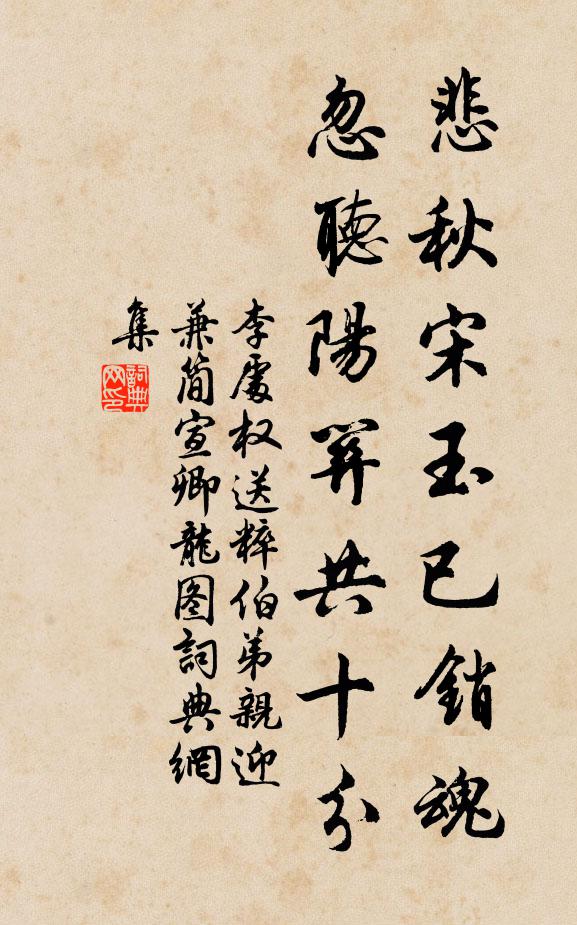 悲秋宋玉已銷魂
忽聽陽關共十分
李處权送粹伯弟親迎
兼简宣卿龍图詞典網
集
詞典
网印